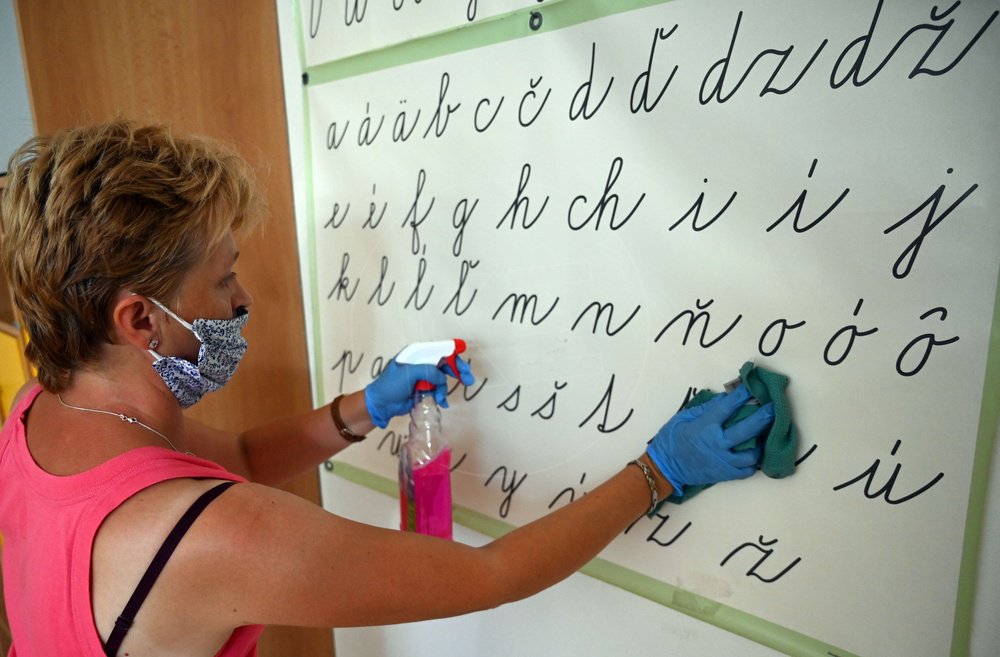 a á ä b c č d ď dz dž
e é f g h ch i í j
k l ĺ ľ m n ň o ó ô
p s š ú
y ý z ž